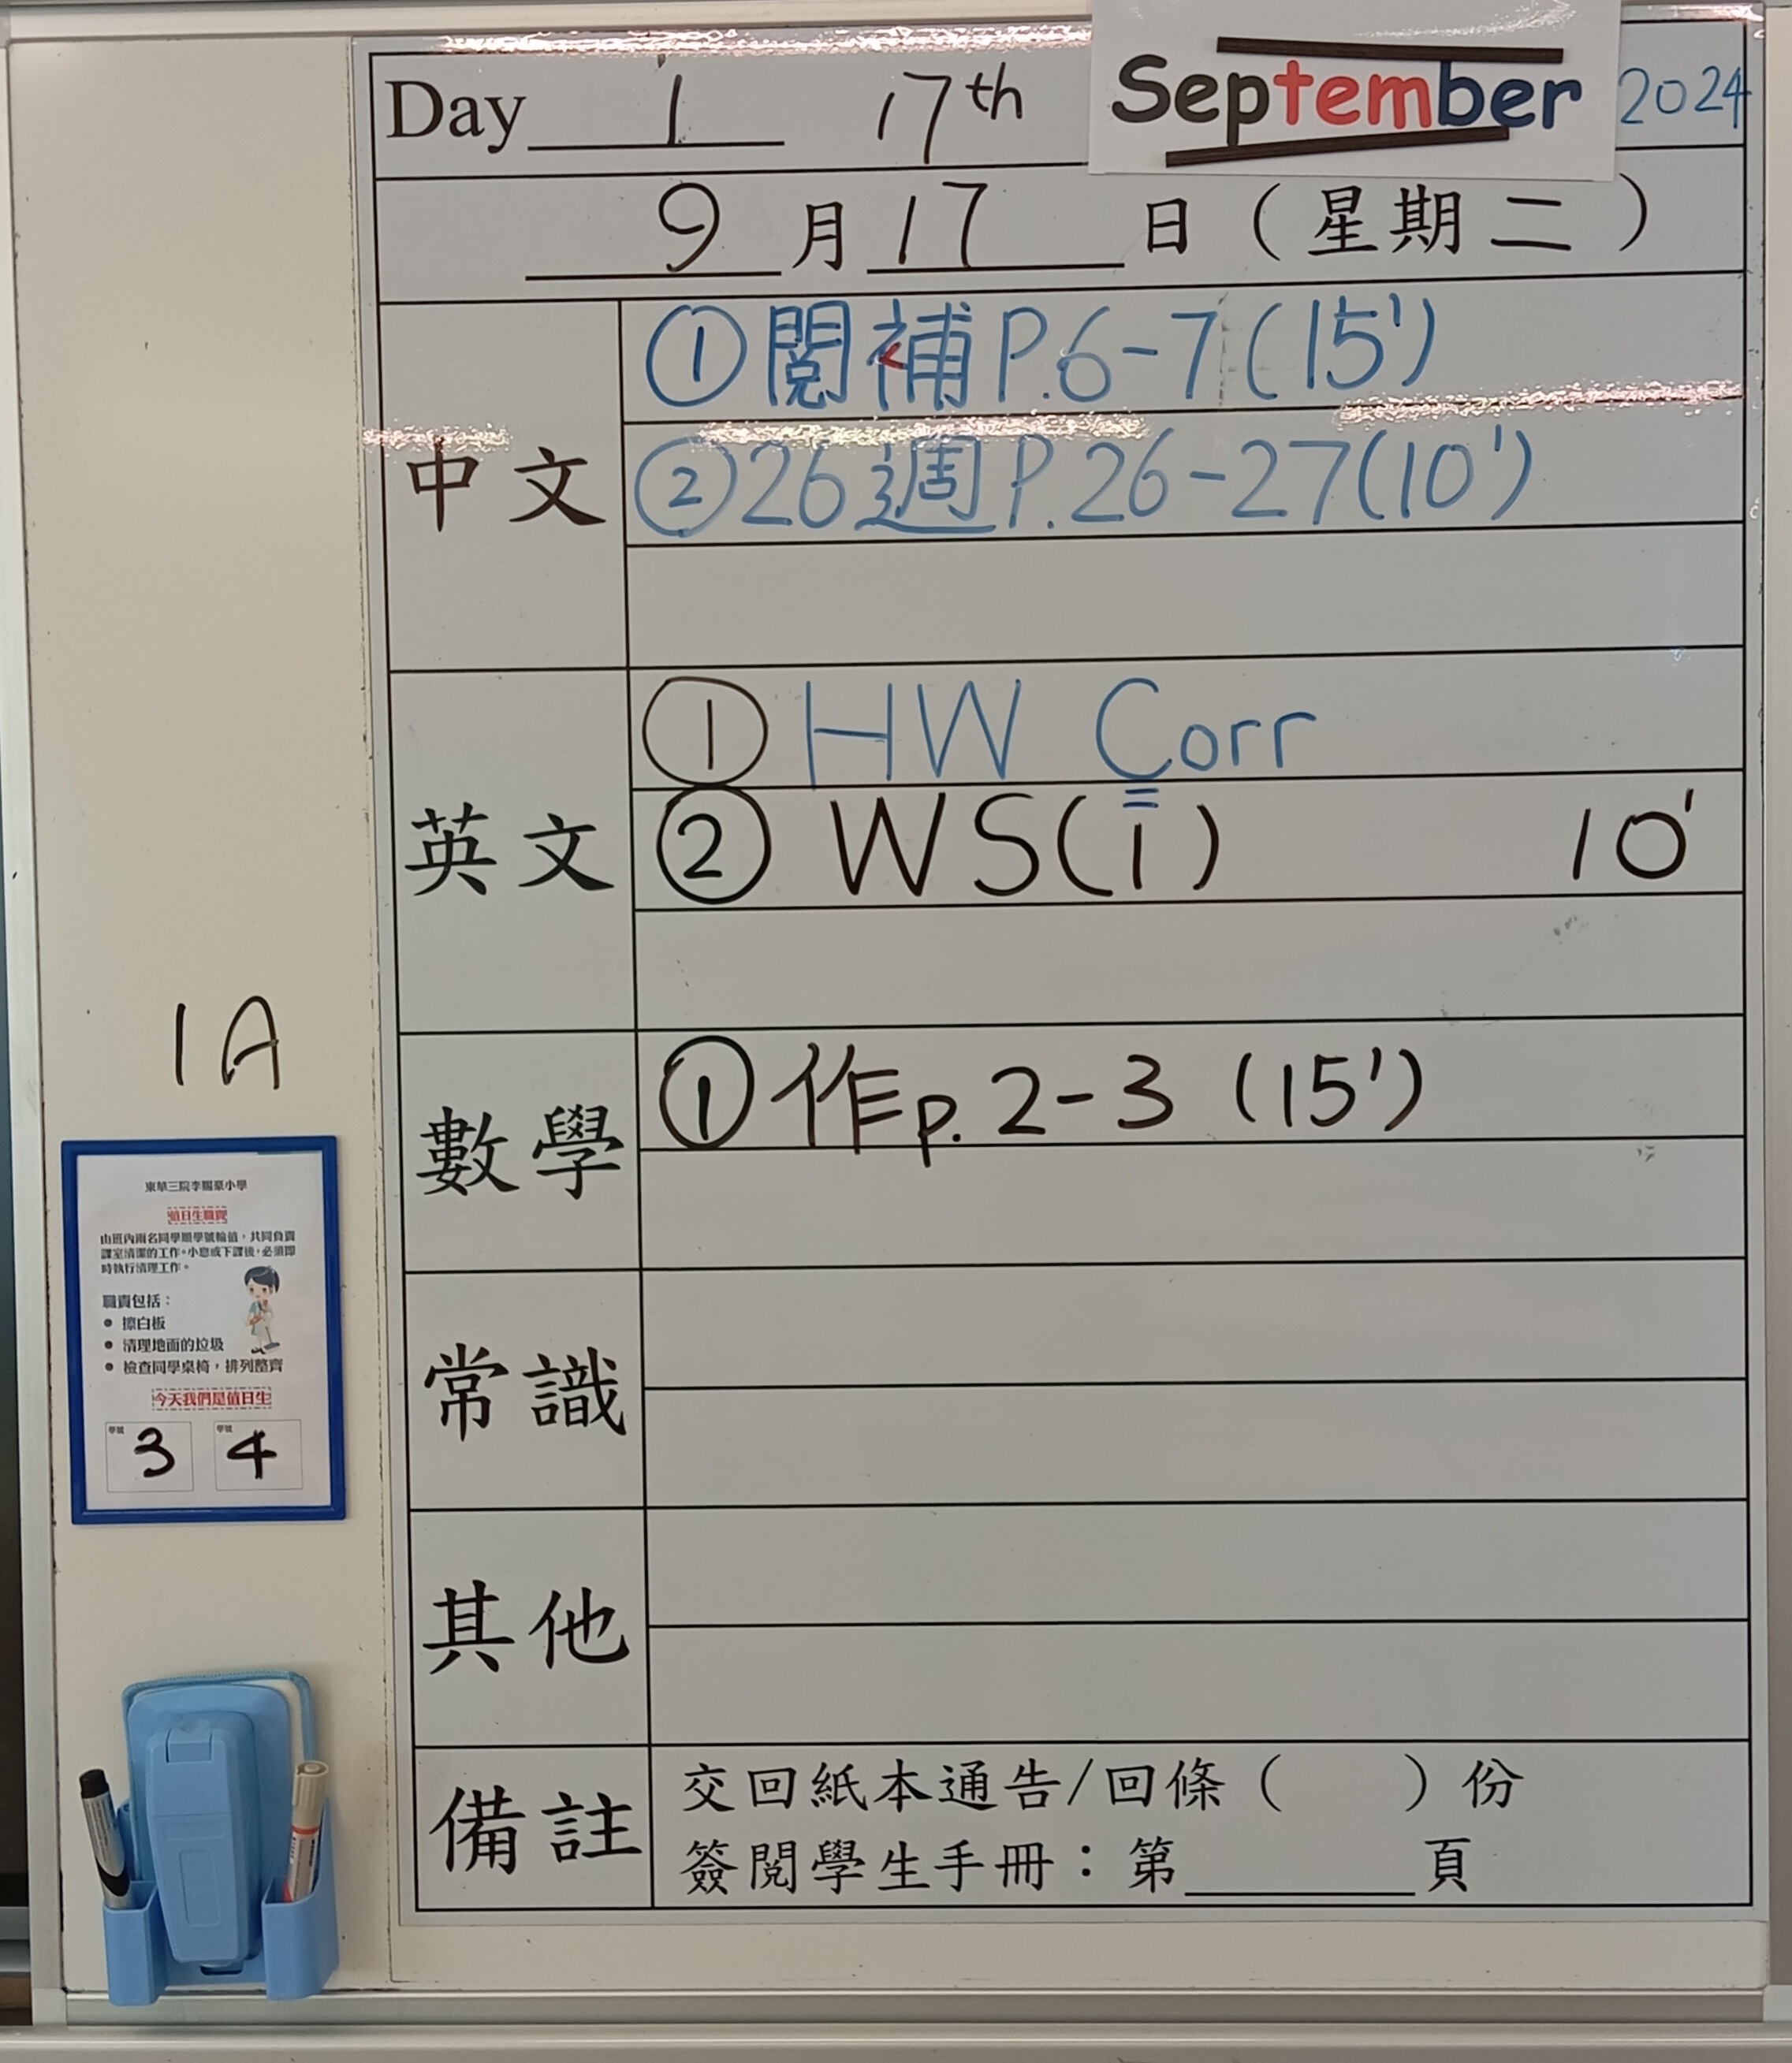 Day 1 17th September 2024
9月17日（星期二）
中文
①閱補P.6-7(15')
②26週P.26-27(10')
英文
① HW Corr
② WS(1) 10'
數學
①作p.2-3 (15')
常識
其他
備註
交回紙本通告/回條（ ）份
簽閱學生手冊：第____頁
1A
東華三院李賜豪小學
值日生職責
由班內兩名同學順學號輪值，共同負責
課室清潔的工作。小息或下課後，必須即
時執行清理工作。
職責包括：
● 擦白板
● 清理地面的垃圾
● 檢查同學桌椅，排列整齊
今天我們是值日生
學號 3 學號 4